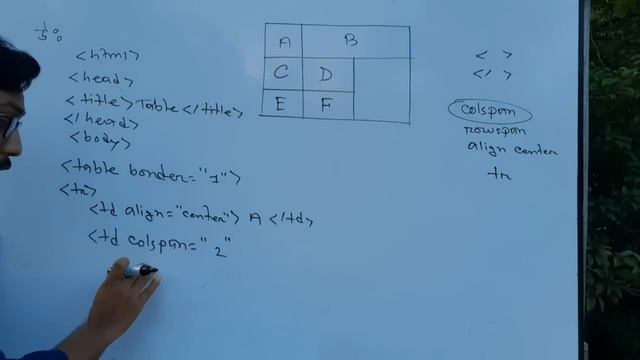 1/5 %
<html>
<head>
<title> Table </title>
</head>
<body>
<table border="1">
<tr>
<td align="center"> A </td>
<td colspan="2"
A B
C D
E F
< >
</ >
colspan
rowspan
align center
tr